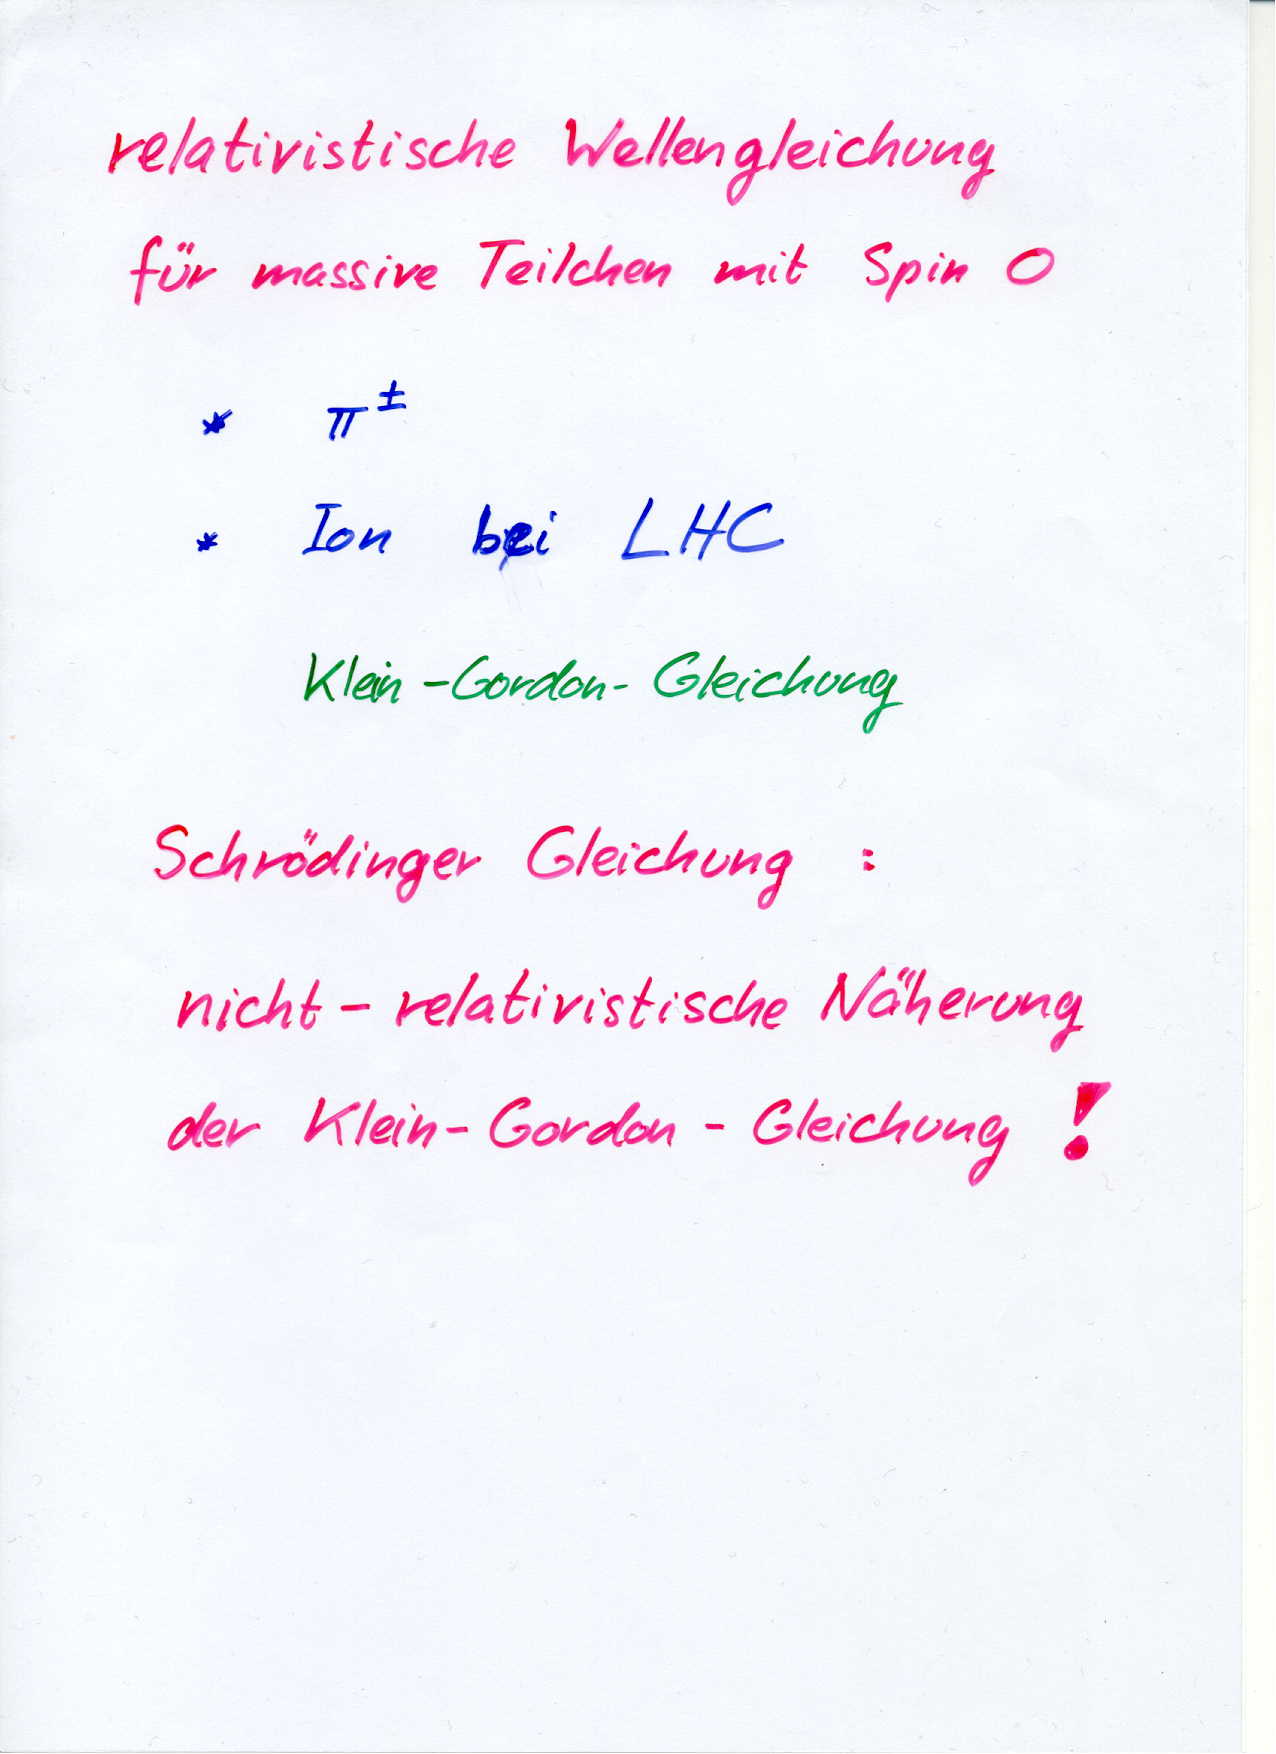 relativistische Wellengleichung
für massive Teilchen mit Spin 0
* π±
* Ion bei LHC
Klein-Gordon-Gleichung
Schrödinger Gleichung :
nicht-relativistische Näherung
der Klein-Gordon-Gleichung !